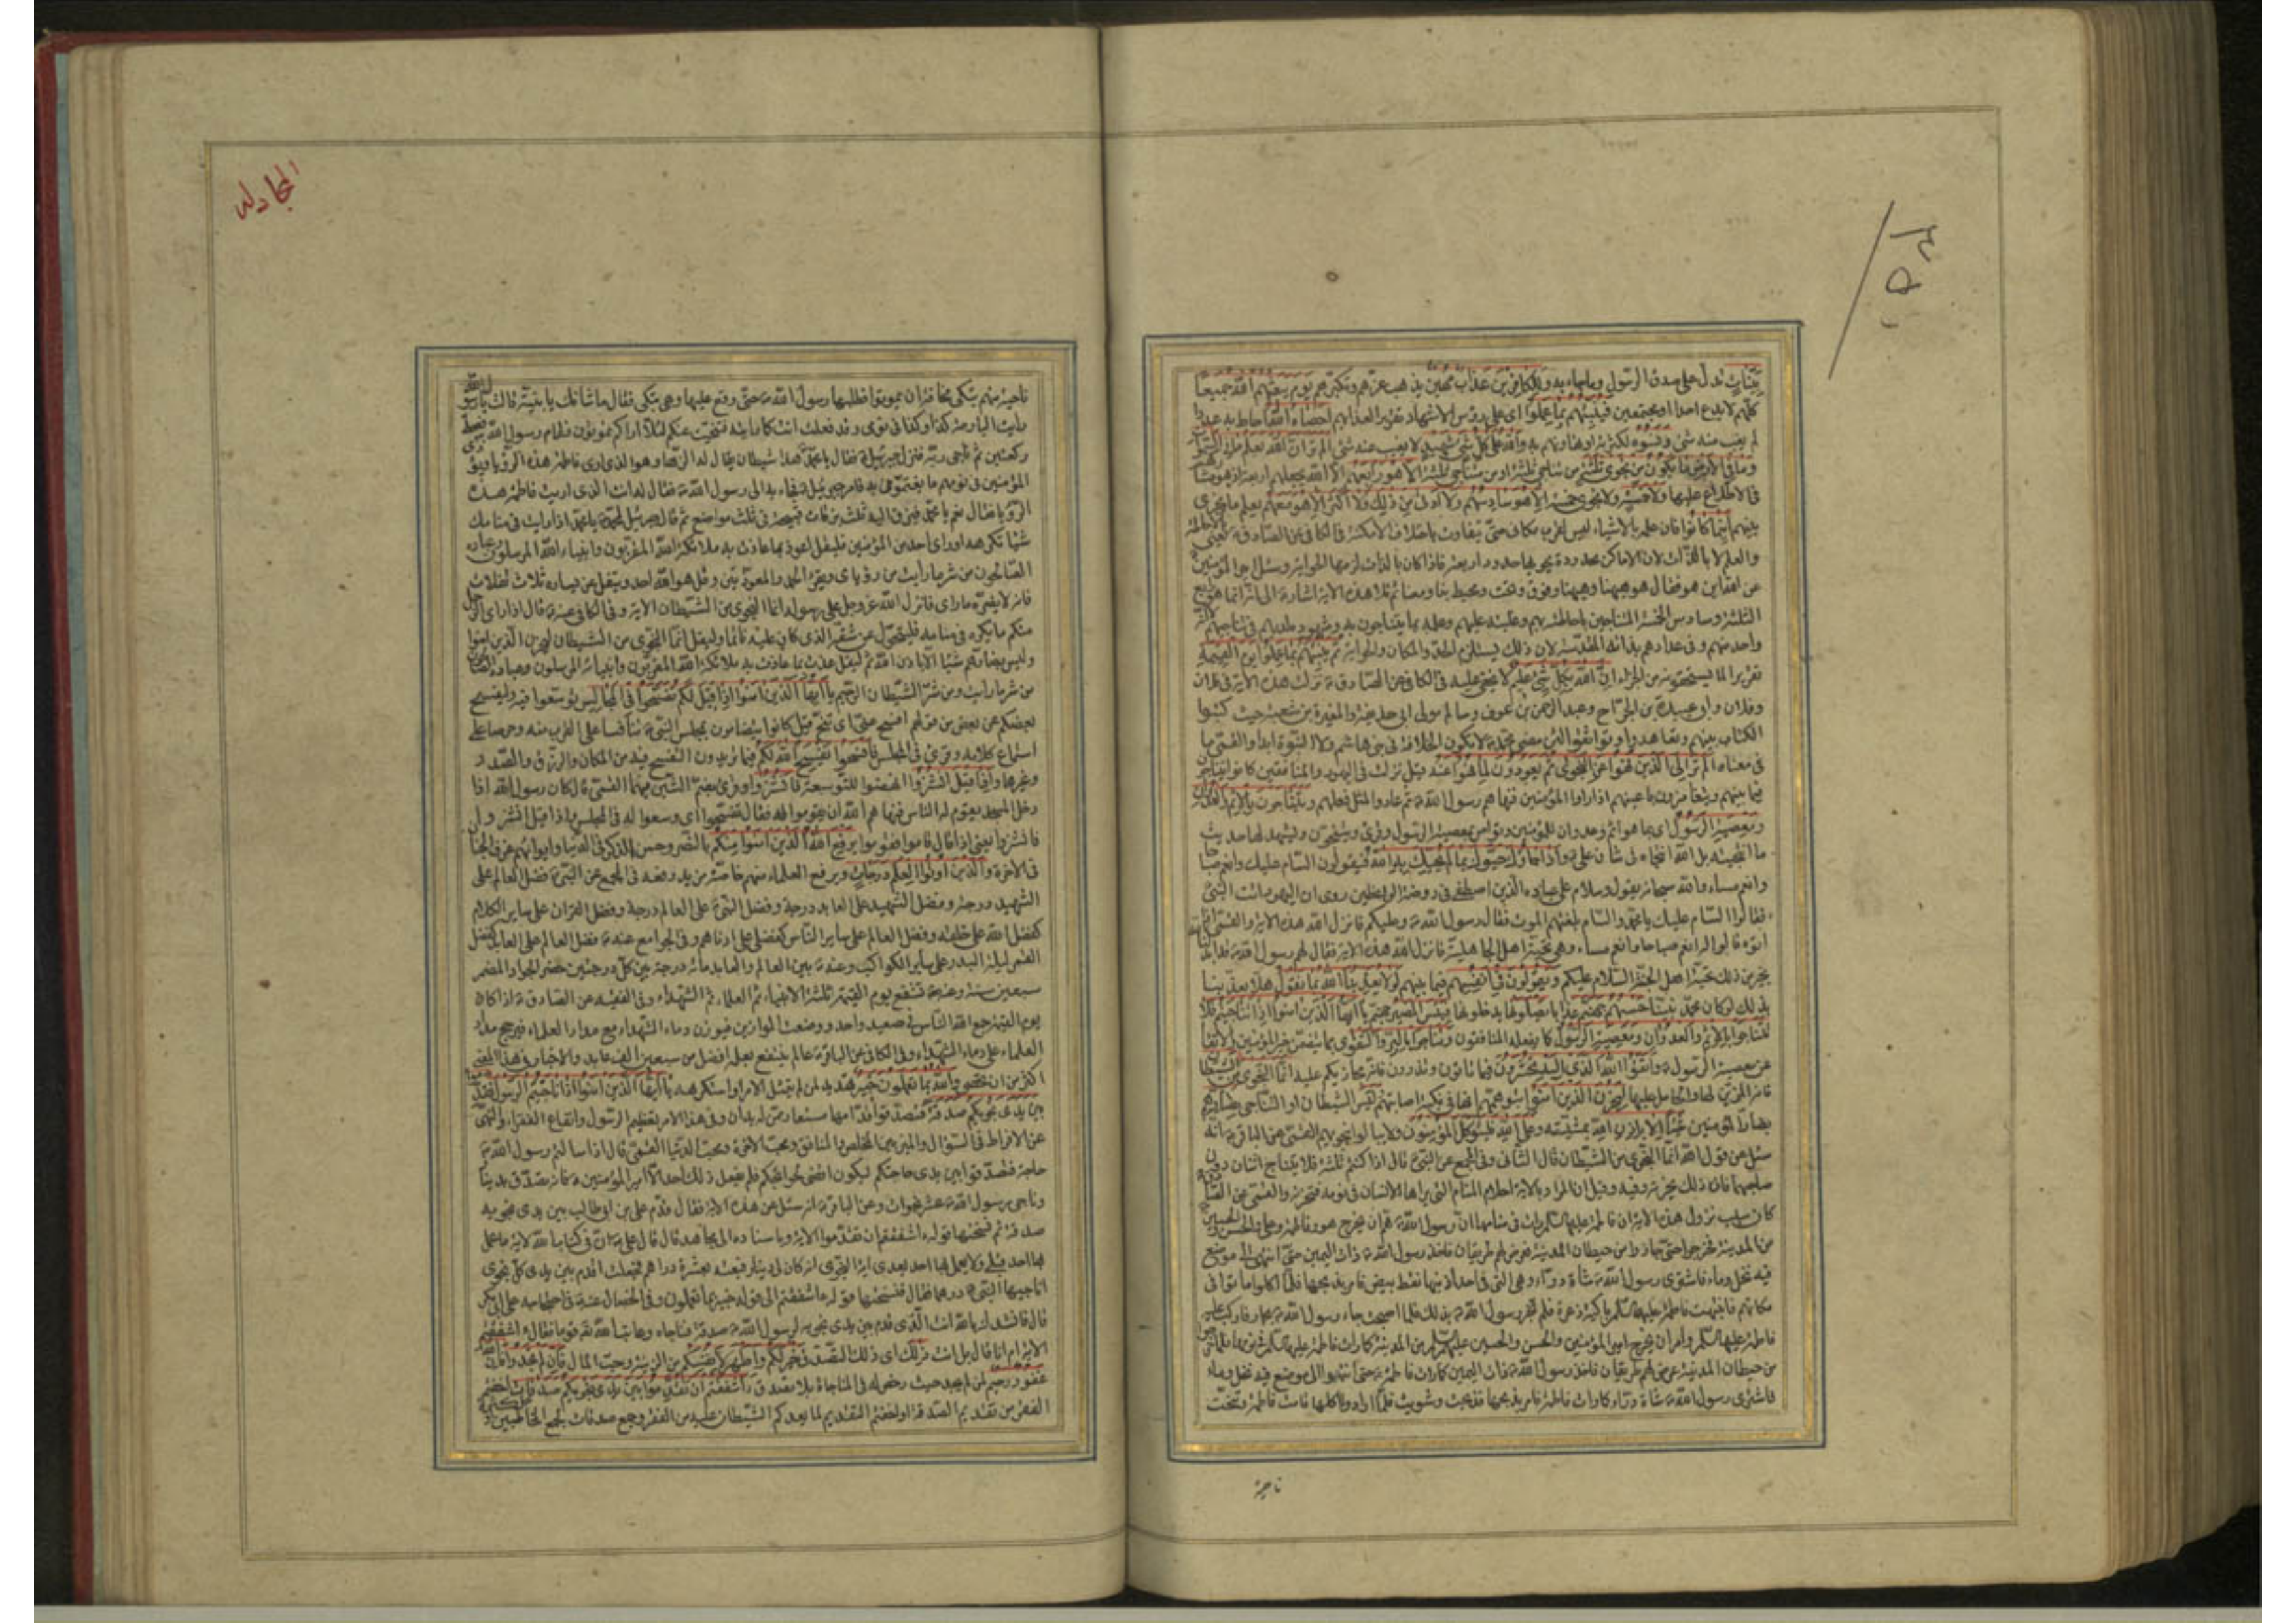 بَيِّنَاتٍ تدل على صدق الرسول وما جاء به وَلِلْكَافِرِينَ عَذَابٌ مُهِينٌ يذهب عزهم وتكبرهم يَوْمَ يَبْعَثُهُمُ اللَّهُ جَمِيعًا
كلهم لا يدع احدا او مجتمعين فَيُنَبِّئُهُمْ بِمَا عَمِلُوا اى على رؤس الاشهاد تقريرا لعذابهم أَحْصَاهُ اللَّهُ احاط به عددا
لم يغب منه شئ وَنَسُوهُ لكثرته او تهاونهم به وَاللَّهُ عَلَى كُلِّ شَيْءٍ شَهِيدٌ لا يغيب عنه شئ أَلَمْ تَرَ أَنَّ اللَّهَ يَعْلَمُ مَا فِي السَّمَوَاتِ
وَمَا فِي الْأَرْضِ مَا يَكُونُ مِنْ نَجْوَى ثَلَاثَةٍ من تناجى ثلثة او من متناجين ثلثة إِلَّا هُوَ رَابِعُهُمْ الا الله يجعلهم اربعة اذ هو مشاركهم
فى الاطلاع عليها وَلَا خَمْسَةٍ ولا نجوى خمسة إِلَّا هُوَ سَادِسُهُمْ وَلَا أَدْنَى مِنْ ذَلِكَ وَلَا أَكْثَرَ إِلَّا هُوَ مَعَهُمْ يعلم ما يجرى
بينهم أَيْنَمَا كَانُوا فان علمه بالاشياء ليس لقرب مكانى حتى يتفاوت باختلاف الامكنة فى الكافى عن الصادق ع يعنى بالاحاطة
والعلم لا بالذات لان الاماكن محدودة تحويها حدود اربعة فاذا كان بالذات لزمها الحواية وسئل امير المؤمنين
عن الله اين هو فقال هو ههنا وههنا وفوق وتحت ومحيط بنا ومعنا ثم تلا هذه الآية اشارة الى انه انما هو رابع
الثلثة وسادس الخمسة المتناجين باحاطته بهم وغلبته عليهم وعلمه بما يتناجون به وشهوده لديهم فى تناجيهم لا انه
واحد منهم وفى عدادهم بذاته المقدسة لان ذلك يستلزم الحد والمكان والحواية ثُمَّ يُنَبِّئُهُمْ بِمَا عَمِلُوا يَوْمَ الْقِيَمَةِ
تقريرا لما يستحقونه من الجزاء إِنَّ اللَّهَ بِكُلِّ شَيْءٍ عَلِيمٌ لا يخفى عليه فى الكافى عن الصادق ع نزلت هذه الآية فى فلان
وفلان وابى عبيدة بن الجراح وعبد الرحمن بن عوف وسالم مولى ابى حذيفة والمغيرة بن شعبة حيث كتبوا
الكتاب بينهم وتعاهدوا وتوافقوا لئن مضى محمد ص لا يكون الخلافة فى بنى هاشم ولا النبوة ابدا والقمى ما
فى معناه أَلَمْ تَرَ إِلَى الَّذِينَ نُهُوا عَنِ النَّجْوَى ثُمَّ يَعُودُونَ لِمَا نُهُوا عَنْهُ قيل نزلت فى اليهود والمنافقين كانوا يتناجون
فيما بينهم ويتغامزون باعينهم اذا راوا المؤمنين فنهاهم رسول الله ص ثم عادوا لمثل فعلهم وَيَتَنَاجَوْنَ بِالْإِثْمِ وَالْعُدْوَانِ
وَمَعْصِيَةِ الرَّسُولِ اى بما هو اثم وعدوان للمؤمنين وتواص بمعصية الرسول وقرئ وينتجون ويشهد لها حديث
ما انتجيته بل الله انتجاه فى شان على ع وَإِذَا جَاؤُكَ حَيَّوْكَ بِمَا لَمْ يُحَيِّكَ بِهِ اللَّهُ فيقولون السام عليك وانعم صباحا
وانعم مساء والله سبحانه يقول وسلام على عباده الذين اصطفى فى روضة الواعظين روى ان اليهود اتت النبى
ص فقالوا السام عليك يا محمد والسام بلغتهم الموت فقال رسول الله ص وعليكم فانزل الله هذه الآية والقمى اذا
اتوه قالوا له انعم صباحا وانعم مساء وهى تحية اهل الجاهلية فانزل الله هذه الآية فقال لهم رسول الله ص قد ابدلنا الله
بخير من ذلك تحية اهل الجنة السلام عليكم وَيَقُولُونَ فِي أَنْفُسِهِمْ فيما بينهم لَوْلَا يُعَذِّبُنَا اللَّهُ بِمَا نَقُولُ هلا يعذبنا
بذلك لو كان محمد نبيا حَسْبُهُمْ جَهَنَّمُ عذابا يَصْلَوْنَهَا يدخلونها فَبِئْسَ الْمَصِيرُ جهنم يَا أَيُّهَا الَّذِينَ آمَنُوا إِذَا تَنَاجَيْتُمْ فَلَا
تَتَنَاجَوْا بِالْإِثْمِ وَالْعُدْوَانِ وَمَعْصِيَةِ الرَّسُولِ كما يفعله المنافقون وَتَنَاجَوْا بِالْبِرِّ وَالتَّقْوَى بما يتضمن خير المؤمنين والاتقاء
عن معصية الرسول ص وَاتَّقُوا اللَّهَ الَّذِي إِلَيْهِ تُحْشَرُونَ فيما تاتون وتذرون فانه مجازيكم عليه إِنَّمَا النَّجْوَى مِنَ الشَّيْطَانِ
فانه المزين لها والحامل عليها لِيَحْزُنَ الَّذِينَ آمَنُوا بتوهمهم انها فى نكبة اصابتهم وَلَيْسَ الشيطان او التناجى بِضَارِّهِمْ
بضار المؤمنين شَيْئًا إِلَّا بِإِذْنِ اللَّهِ بمشيته وَعَلَى اللَّهِ فَلْيَتَوَكَّلِ الْمُؤْمِنُونَ ولا يبالوا بنجويهم القمى عن الباقر ع انه
سئل عن قول الله انما النجوى من الشيطان قال الثانى وفى المجمع عن النبى ص قال اذا كنتم ثلثة فلا يتناج اثنان دون
صاحبهما فان ذلك يحزنه وفيه وقيل ان المراد بالآية احلام المنام التى يراها الانسان فى نومه فتحزنه والقمى عن الصادق
كان سبب نزول هذه الآية ان فاطمة عليها السلام رات فى منامها ان رسول الله ص هم ان يخرج هو وفاطمة وعلى والحسن والحسين
من المدينة فخرجوا حتى جازوا من حيطان المدينة فعرض لهم طريقان فاخذ رسول الله ص ذات اليمين حتى انتهى الى موضع
فيه نخل وماء فاشترى رسول الله ص شاة ذراء وهى التى فى احد اذنيها نقط بيض فامر بذبحها فلما اكلوا ماتوا فى
مكانهم فانتبهت فاطمة عليها السلام باكية ذعرة فلم تخبر رسول الله ص بذلك فلما اصبحت جاء رسول الله ص بحمار فاركب عليه
فاطمة عليها السلام وامر ان يخرج امير المؤمنين والحسن والحسين عليهم السلام من المدينة كما رات فاطمة عليها السلام فى نومها فلما خرجوا
من حيطان المدينة عرض لهم طريقان فاخذ رسول الله ص ذات اليمين كما رات فاطمة حتى انتهوا الى موضع فيه نخل وماء
فاشترى رسول الله ص شاة ذراء كما رات فاطمة فامر بذبحها فذبحت وشويت فلما ارادوا اكلها قامت فاطمة وتنحت
ناحية
المجادلة
ناحية منهم تبكى مخافة ان يموتوا فطلبها رسول الله ص حتى وقع عليها وهى تبكى فقال ما شانك يا بنية قالت يا رسول الله
رايت البارحة كذا وكذا فى نومى وقد فعلت انت كما رايته فتنحيت عنكم لئلا اراكم تموتون فقام رسول الله ص فصلى
ركعتين ثم ناجى ربه فنزل جبرئيل ع فقال يا محمد هذا شيطان يقال له الرها وهو الذى ارى فاطمة هذه الرؤيا ويؤذى
المؤمنين فى نومهم ما يغتمون به فامر جبرئيل ع فجاء به الى رسول الله ص فقال له انت الذى اريت فاطمة هذه
الرؤيا فقال نعم يا محمد فبزق اليه ثلث بزقات فشجه فى ثلث مواضع ثم قال جبرئيل لمحمد ص يا محمد اذا رايت فى منامك
شيئا تكرهه او راى احد من المؤمنين فليقل اعوذ بما عاذت به ملائكة الله المقربون وانبياء الله المرسلون وعباده
الصالحون من شر ما رايت من رؤياى ويقرء الحمد والمعوذتين وقل هو الله احد ويتفل عن يساره ثلاث تفلات
فانه لا يضره ما راى فانزل الله عز وجل على رسوله انما النجوى من الشيطان الآية وفى الكافى عنه ع قال اذا راى الرجل
منكم ما يكره فى منامه فليتحول عن شقه الذى كان عليه نائما وليقل انما النجوى من الشيطان ليحزن الذين امنوا
وليس بضارهم شيئا الا باذن الله ثم ليقل عذت بما عاذت به ملائكة الله المقربون وانبيائه المرسلون وعباده الصالحون
من شر ما رايت ومن شر الشيطان الرجيم يَا أَيُّهَا الَّذِينَ آمَنُوا إِذَا قِيلَ لَكُمْ تَفَسَّحُوا فِي الْمَجَالِسِ توسعوا فيه وليفسح
بعضكم عن بعض من قولهم افسح عنى اى تنح قيل كانوا يتضامون بمجلس النبى ص تنافسا على القرب منه وحرصا على
استماع كلامه وقرئ فى المجلس فَافْسَحُوا يَفْسَحِ اللَّهُ لَكُمْ فيما تريدون التفسح فيه من المكان والرزق والصدر
وغيرها وَإِذَا قِيلَ انْشُزُوا انهضوا للتوسعة فَانْشُزُوا وقرئ بضم الشين فيهما القمى قال كان رسول الله اذا
دخل المسجد يقوم له الناس فنهاهم الله ان يقوموا له فقال تفسحوا اى وسعوا له فى المجلس واذا قيل انشزوا
فانشزوا يعنى اذا قال قوموا فقوموا يَرْفَعِ اللَّهُ الَّذِينَ آمَنُوا مِنْكُمْ بالنصر وحسن الذكر فى الدنيا وايوائهم غرف الجنان
فى الآخرة وَالَّذِينَ أُوتُوا الْعِلْمَ دَرَجَاتٍ ويرفع العلماء منهم خاصة مزيد رفعة فى المجمع عن النبى ص فضل العالم على
الشهيد درجة وفضل الشهيد على العابد درجة وفضل النبى على العالم درجة وفضل القران على ساير الكلام
كفضل الله على خلقه وفضل العالم على ساير الناس كفضلى على ادناهم وفى الجوامع عنه ص فضل العالم على العابد كفضل
القمر ليلة البدر على ساير الكواكب وعنه ص بين العالم والعابد مائة درجة بين كل درجتين حضر الجواد المضمر
سبعين سنة وعنه ص تشفع يوم القيمة ثلثة الانبياء ثم العلماء ثم الشهداء وفى الفقيه عن الصادق ع اذا كان
يوم القيمة جمع الله الناس فى صعيد واحد ووضعت الموازين فيوزن دماء الشهداء مع مداد العلماء فيرجح مداد
العلماء على دماء الشهداء وفى الكافى عن الباقر ع عالم ينتفع بعلمه افضل من سبعين الف عابد والاخبار فى هذا المعنى
اكثر من ان تحصى وَاللَّهُ بِمَا تَعْمَلُونَ خَبِيرٌ تهديد لمن لم يمتثل الامر او استكرهه يَا أَيُّهَا الَّذِينَ آمَنُوا إِذَا نَاجَيْتُمُ الرَّسُولَ فَقَدِّمُوا
بَيْنَ يَدَيْ نَجْوَيكُمْ صَدَقَةً فتصدقوا قدامها مستعار ممن له يدان وفى هذا الامر تعظيم الرسول وانفاع الفقراء والنهى
عن الافراط فى السؤال والميز بين المخلص والمنافق ومحب الآخرة ومحب الدنيا القمى قال اذا سالتم رسول الله ص
حاجة فتصدقوا بين يدى حاجتكم ليكون اقضى لحوائجكم فلم يفعل ذلك احد الا امير المؤمنين ع فانه تصدق بدينار
وناجى رسول الله ص عشر نجوات وعن الباقر ع انه سئل عن هذه الآية فقال قدم على بن ابى طالب بين يدى نجويه
صدقة ثم نسختها قوله ءاشفقتم ان تقدموا الآية وباسناده الى مجاهد قال قال على ع ان فى كتاب الله لآية ما عمل
بها احد قبلى ولا يعمل بها احد بعدى آية النجوى انه كان لى دينار فبعته بعشرة دراهم فجعلت اقدم بين يدى كل نجوى
اناجيها النبى ص درهما قال فنسختها قوله ءاشفقتم الى قوله خبير بما تعملون وفى الخصال عنه ع فى احتجاجه على ابى بكر
قال فانشدك بالله انت الذى قدم بين يدى نجويه لرسول الله ص صدقة فناجاه وعاتب الله تع قوما فقال ءاشفقتم
الآية ام انا قال بل انت ذَلِكَ اى ذلك التصدق خَيْرٌ لَكُمْ وَأَطْهَرُ لانفسكم من الريبة وحب المال فَإِنْ لَمْ تَجِدُوا فَإِنَّ اللَّهَ
غَفُورٌ رَحِيمٌ لمن لم يجد حيث رخص له فى المناجاة بلا تصدق ءَأَشْفَقْتُمْ أَنْ تُقَدِّمُوا بَيْنَ يَدَيْ نَجْوَيكُمْ صَدَقَاتٍ اخفتم
الفقر من تقديم الصدقة او اخفتم التقديم لما يعدكم الشيطان عليه من الفقر وجمع صدقات لجمع المخاطبين او